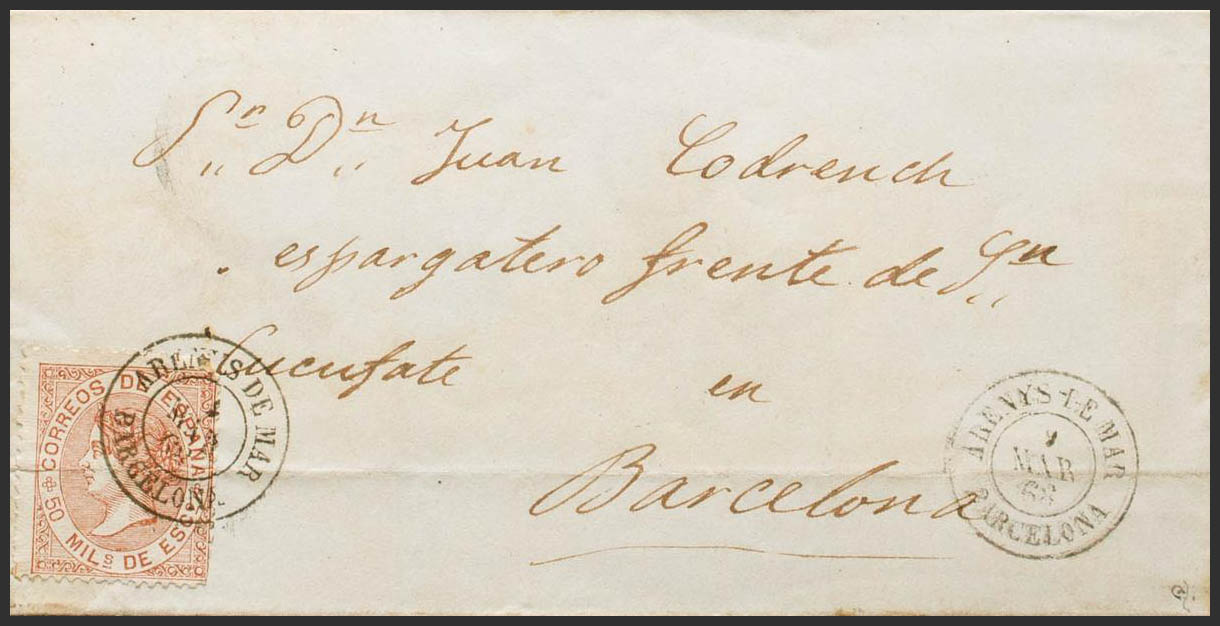 Sn Dn Juan Codrench
espargatero frente de Sn
Cucufate en
Barcelona
CORREOS DE ESPAÑA
50 MILS DE ES
ARENYS DE MAR
BARCELONA
ARENYS DE MAR
MAR
68
BARCELONA